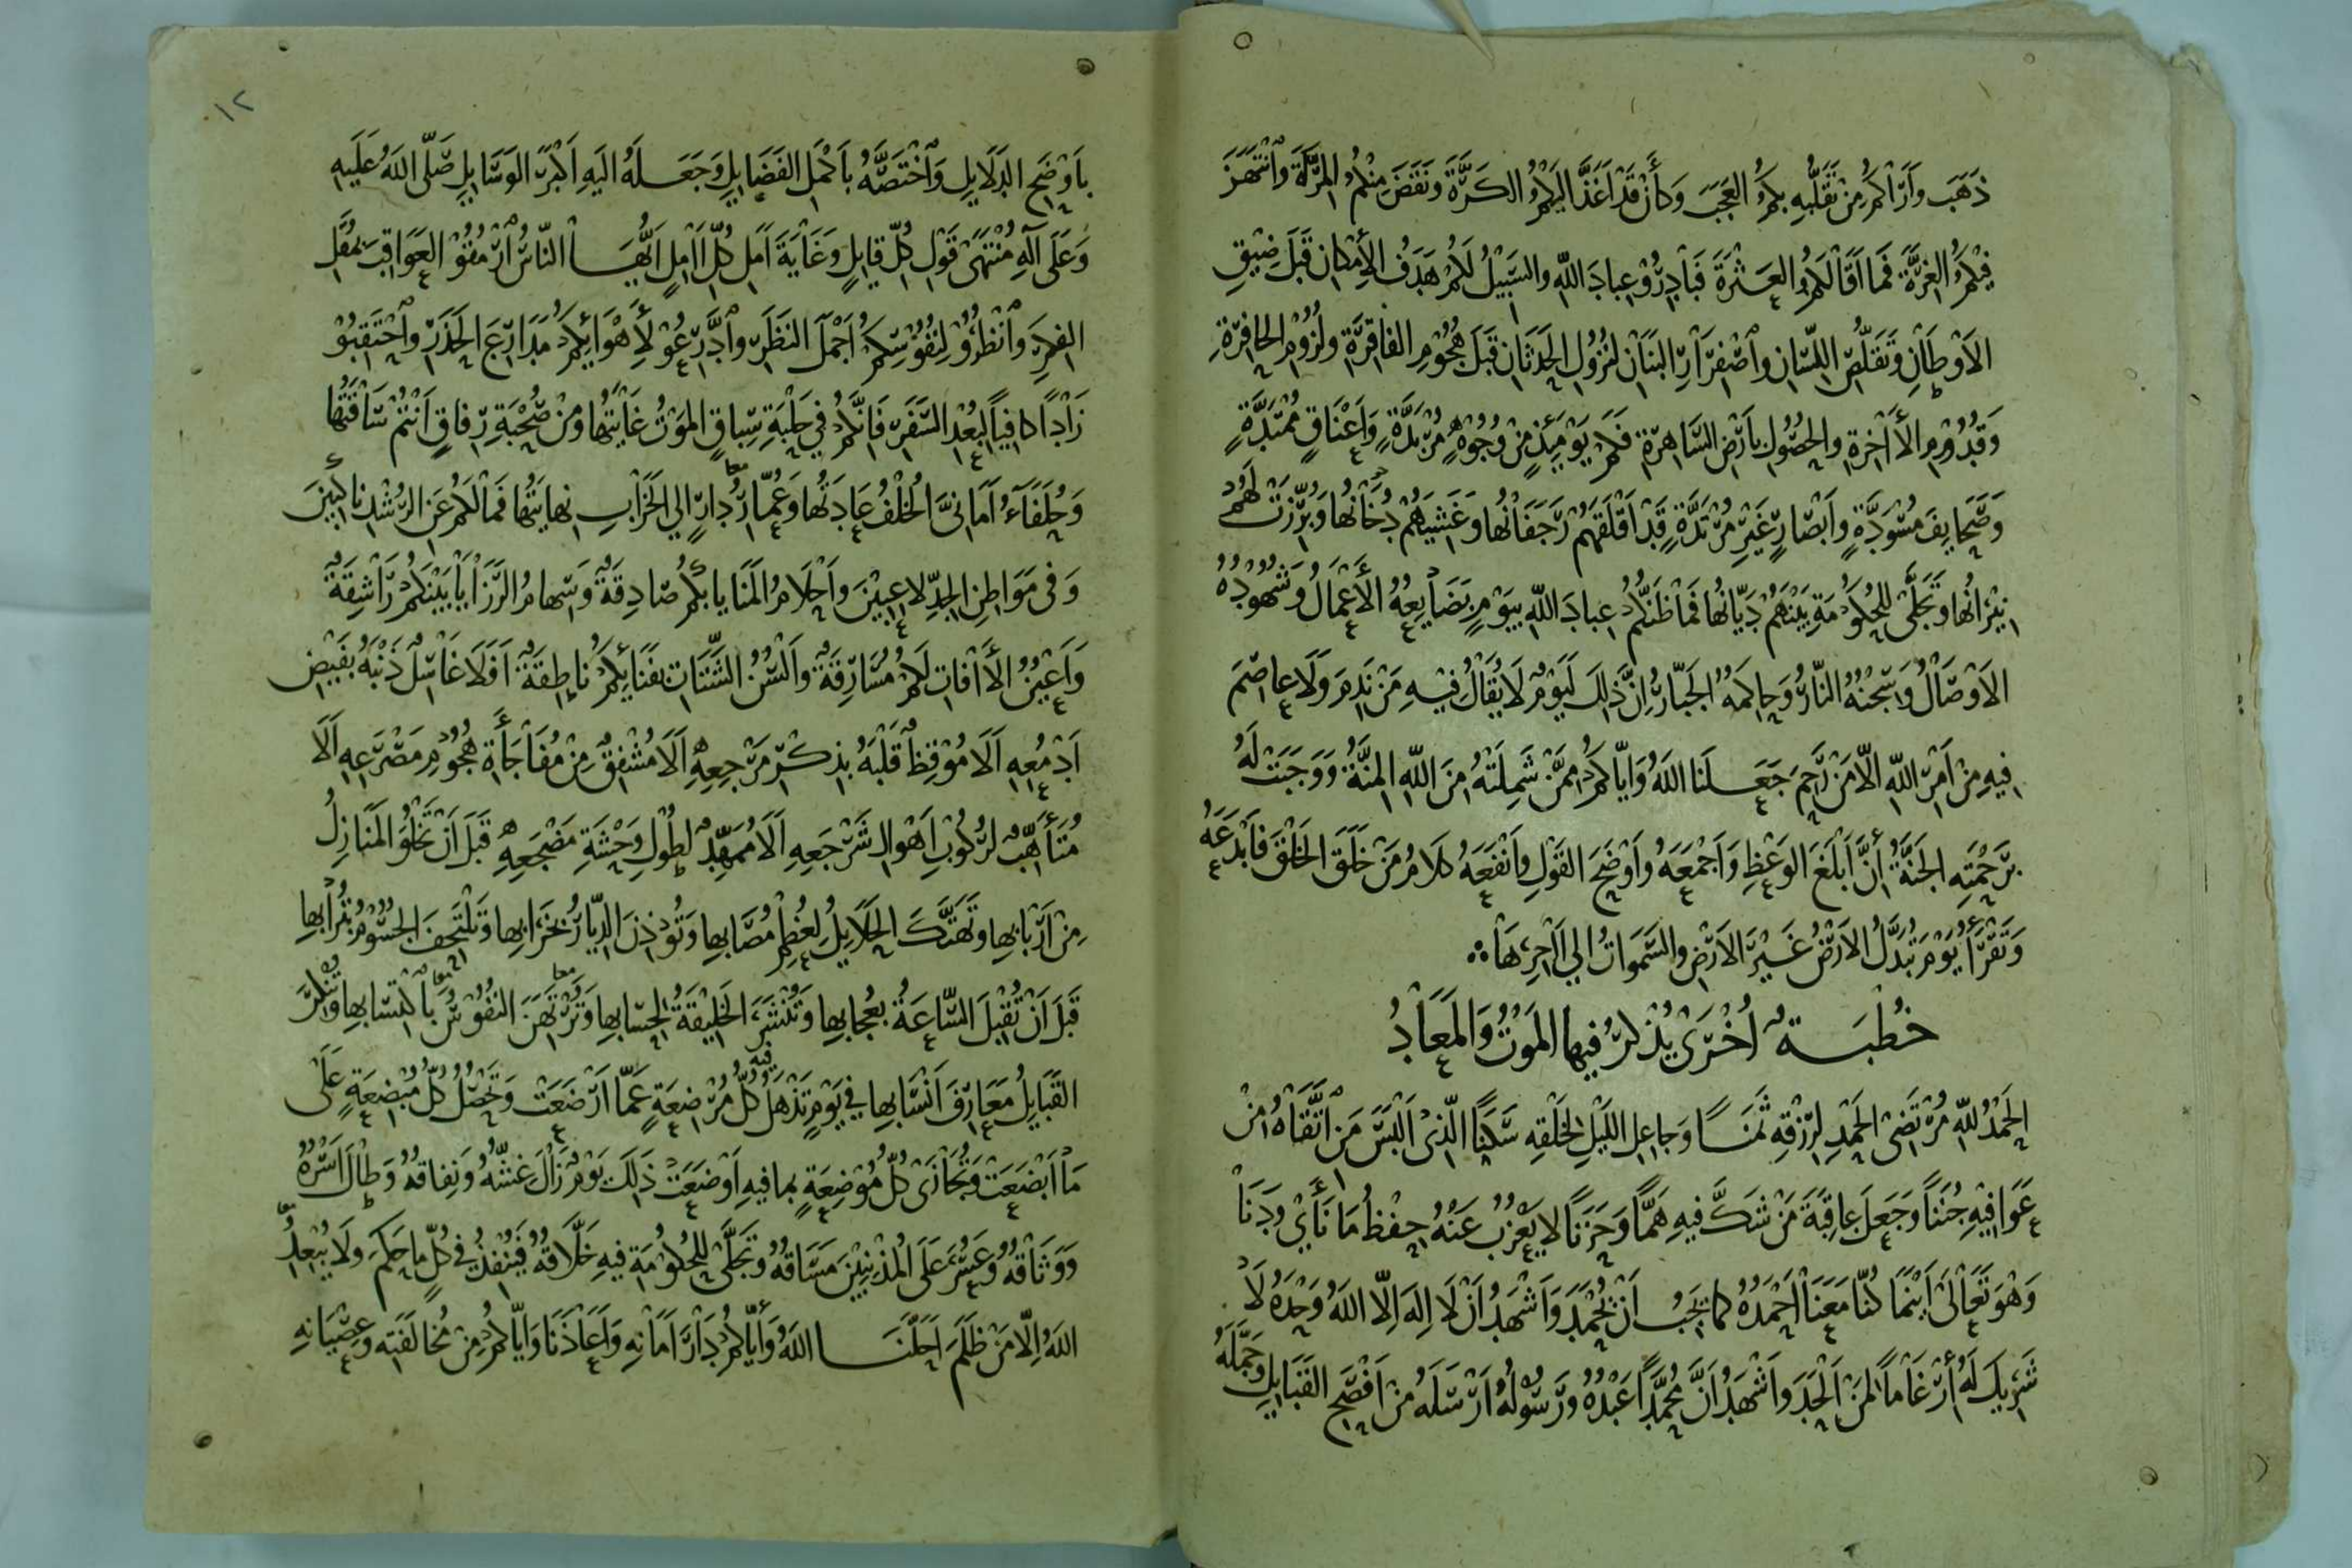 ذَهَبَ وَأَرَاكُمْ مِنْ تَقَلُّبِهِ بِكُمُ العَجَبَ وَكَأَنْ قَدْ أَغَذَّ إِلَيْكُمُ الكَرَّةَ وَنَقَضَ مِنْكُمُ المِرَّةَ وَانْتَهَزَ
فِيْكُمُ الغِرَّةَ فَمَا أَقَالَكُمُ العَثْرَةَ فَبَادِرُوْا عِبَادَ اللهِ وَالسَّبِيْلُ لَكُمْ هَدَفُ الأَمْكَانِ قَبْلَ ضِيْقِ
الأَوْطَانِ وَتَقَلُّصِ اللِّسَانِ وَاصْفِرَارِ البَنَانِ لِنُزُوْلِ الحَدَثَانِ قَبْلَ هُجُوْمِ الفَاقِرَةِ وَلُزُوْمِ الحَافِرَةِ
وَقُدُوْمِ الأَخِرَةِ وَالحُصُوْلِ بِأَرْضِ السَّاهِرَةِ فَكَمْ يَوْمَئِذٍ مِنْ وُجُوْهٍ مُرْبَدَّةٍ وَأَعْنَاقٍ مُمْتَدَّةٍ
وَصَحَايِفَ مُسْوَدَّةٍ وَأَبْصَارٍ غَيْرِ مُرْتَدَّةٍ قَدْ أَقْلَقَهُمْ رَجَفَانُهَا وَغَشِيَهُمْ دُخَانُهَا وَبُرِّزَتْ لَهُمْ
نِيْرَانُهَا وَتَجَلَّى لِلْحُكُوْمَةِ بَيْنَهُمْ دَيَّانُهَا فَمَا ظَنُّكُمْ عِبَادَ اللهِ بِيَوْمٍ بَضَايِعُهُ الأَعْمَالُ وَشُهُوْدُهُ
الأَوْصَالُ وَسِجْنُهُ النَّارُ وَحَاكِمُهُ الجَبَّارُ إِنَّ ذَلِكَ لَيَوْمٌ لَا يُقَالُ فِيْهِ مَنْ نَدِمَ وَلَا عَاصِمَ
فِيهِ مِنْ أَمْرِ اللهِ إِلَّا مَنْ رَحِمَ جَعَلَنَا اللهُ وَإِيَّاكُمْ مِمَّنْ شَمِلَتْهُ مِنَ اللهِ المِنَّةُ وَوَجَبَتْ لَهُ
بِرَحْمَتِهِ الجَنَّةُ أَنَّ أَبْلَغَ الوَعْظِ وَأَجْمَعَهُ وَأَوْضَحَ القَوْلِ وَأَنْفَعَهُ كَلَامُ مَنْ خَلَقَ الخَلْقَ فَأَبْدَعَهُ
وَتَقْرَأُ يَوْمَ تُبَدَّلُ الأَرْضُ غَيْرَ الأَرْضِ وَالسَّمَوَاتُ إِلَى آخِرِهَا
خُطْبَةٌ أُخْرَى يُذْكَرُ فِيهَا المَوْتُ وَالمَعَادُ
الحَمْدُ للهِ مُرْتَضَى الحَمْدِ لِرِزْقِهِ ثَمَنًا وَجَاعِلِ اللَّيْلِ لِخَلْقِهِ سَكَنًا الَّذِي أَلْبَسَ مَنِ اتَّقَاهُ مِنْ
عَوَافِيْهِ جُنَنًا وَجَعَلَ عَاقِبَةَ مَنْ شَكَّ فِيهِ هَمًّا وَحَزَنًا لَا يَعْزُبُ عَنْهُ حِفْظُ مَا نَأَى وَدَنَا
وَهْوَ تَعَالَى أَيْنَمَا كُنَّا مَعَنَا أَحْمَدُهُ كَمَا يَجِبُ أَنْ يُحْمَدَ وَأَشْهَدُ أَنْ لَا إِلَهَ إِلَّا اللهُ وَحْدَهُ لَا
شَرِيْكَ لَهُ أَرْغَامًا لِمَنْ أَلْحَدَ وَأَشْهَدُ أَنَّ مُحَمَّدًا عَبْدُهُ وَرَسُوْلُهُ أَرْسَلَهُ مِنْ أَفْصَحِ القَبَايِلِ وَجَمَّلَهُ
١٢
بِأَوْضَحِ الدَّلَايِلِ وَاخْتَصَّهُ بِأَكْمَلِ الفَضَايِلِ وَجَعَلَهُ إِلَيْهِ أَكْبَرَ الوَسَايِلِ صَلَّى اللهُ عَلَيْهِ
وَعَلَى آلِهِ مُنْتَهَى قَوْلِ كُلِّ قَايِلٍ وَغَايَةَ أَمَلِ كُلِّ آمِلٍ أَيُّهَا النَّاسُ ارْمُقُوْا العَوَاقِبَ بِمُقَلِ
الفِكَرِ وَانْظُرُوْا لِنُفُوْسِكُمْ أَجْمَلَ النَّظَرِ وَادَّرِعُوْا لِأَهْوَائِكُمْ مَدَارِعَ الحَذَرِ وَاحْتَقِبُوْا
زَادًا كَافِيًا لِبُعْدِ السَّفَرِ فَإِنَّكُمْ فِي حَلْبَةِ سِبَاقٍ المَوْتُ غَايَتُهَا وَمِنْ صُحْبَةِ رِفَاقٍ أَنْتُمْ سَاقَتُهَا
وَحُلَفَاءُ أَمَانِيَّ الخُلْفُ عَادَتُهَا وَعُمَّارُ دَارٍ إِلَى الخَرَابِ نِهَايَتُهَا فَمَا لَكُمْ عَنِ الرُّشْدِ نَاكِبِينَ
وَفِي مَوَاطِنِ الجِدِّ لَاعِبِيْنَ وَأَحْلَامُ المَنَايَا بِكُمْ صَادِقَةٌ وَسِهَامُ الرَّزَايَا بَيْنَكُمْ رَاشِقَةٌ
وَأَعْيُنُ الأَفَاتِ لَكُمْ مُسَارِقَةٌ وَأَلْسُنُ الشَّتَاتِ بِفَنَائِكُمْ نَاطِقَةٌ أَفَلَا غَاسِلٌ ذَنْبَهُ بِفَيْضِ
أَدْمُعِهِ أَلَا مُوْقِظٌ قَلْبَهُ بِذِكْرِ مَرْجِعِهِ أَلَا مُشْفِقٌ مِنْ مُفَاجَأَةِ هُجُوْمِ مَصْرَعِهِ أَلَا
مُتَأَهِّبٌ لِرُكُوْبِ أَهْوَالِ شَرْجَعِهِ أَلَا مُمَهِّدٌ لِطُوْلِ وَحْشَةِ مَضْجَعِهِ قَبْلَ أَنْ تَخْلُوَ المَنَازِلُ
مِنْ أَرْبَابِهَا وَتُهَتَّكَ الحَلَايِلُ لِعُظْمِ مُصَابِهَا وَتُؤْذِنَ الدِّيَارُ بِخَرَابِهَا وَتَلْتَحِفَ الجُسُوْمُ بِتُرَابِهَا
قَبْلَ أَنْ تُقْبِلَ السَّاعَةُ بِعُجَابِهَا وَتُنْشَرَ الخَلِيْقَةُ لِحِسَابِهَا وَتُرْتَهَنَ النُّفُوْسُ بِاكْتِسَابِهَا وَتُنْكِرَ
القَبَايِلُ مَعَارِفَ أَنْسَابِهَا فِي يَوْمٍ تَذْهَلُ فِيهِ كُلُّ مُرْضِعَةٍ عَمَّا أَرْضَعَتْ وَتَحْصُلُ كُلُّ مُبْضِعَةٍ عَلَى
مَا أَبْضَعَتْ وَتُجَازَى كُلُّ مُوْضِعَةٍ بِمَا فِيهِ أَوْضَعَتْ ذَلِكَ يَوْمٌ زَالَ غِشُّهُ وَنِفَاقُهُ وَطَالَ أَسْرُهُ
وَوَثَاقُهُ وَعَسُرَ عَلَى المُذْنِبِيْنَ مَسَاقُهُ وَتَجَلَّى لِلْحُكُوْمَةِ فِيهِ خَلَّاقُهُ فَيُنْفِذُ فِي كُلٍّ مَا حَكَمَ وَلَا يُبْعِدُ
اللهُ إِلَّا مَنْ ظَلَمَ أَحَلَّنَا اللهُ وَإِيَّاكُمْ دَارَ أَمَانِهِ وَأَعَاذَنَا وَإِيَّاكُمْ مِنْ مُخَالَفَتِهِ وَعِصْيَانِهِ